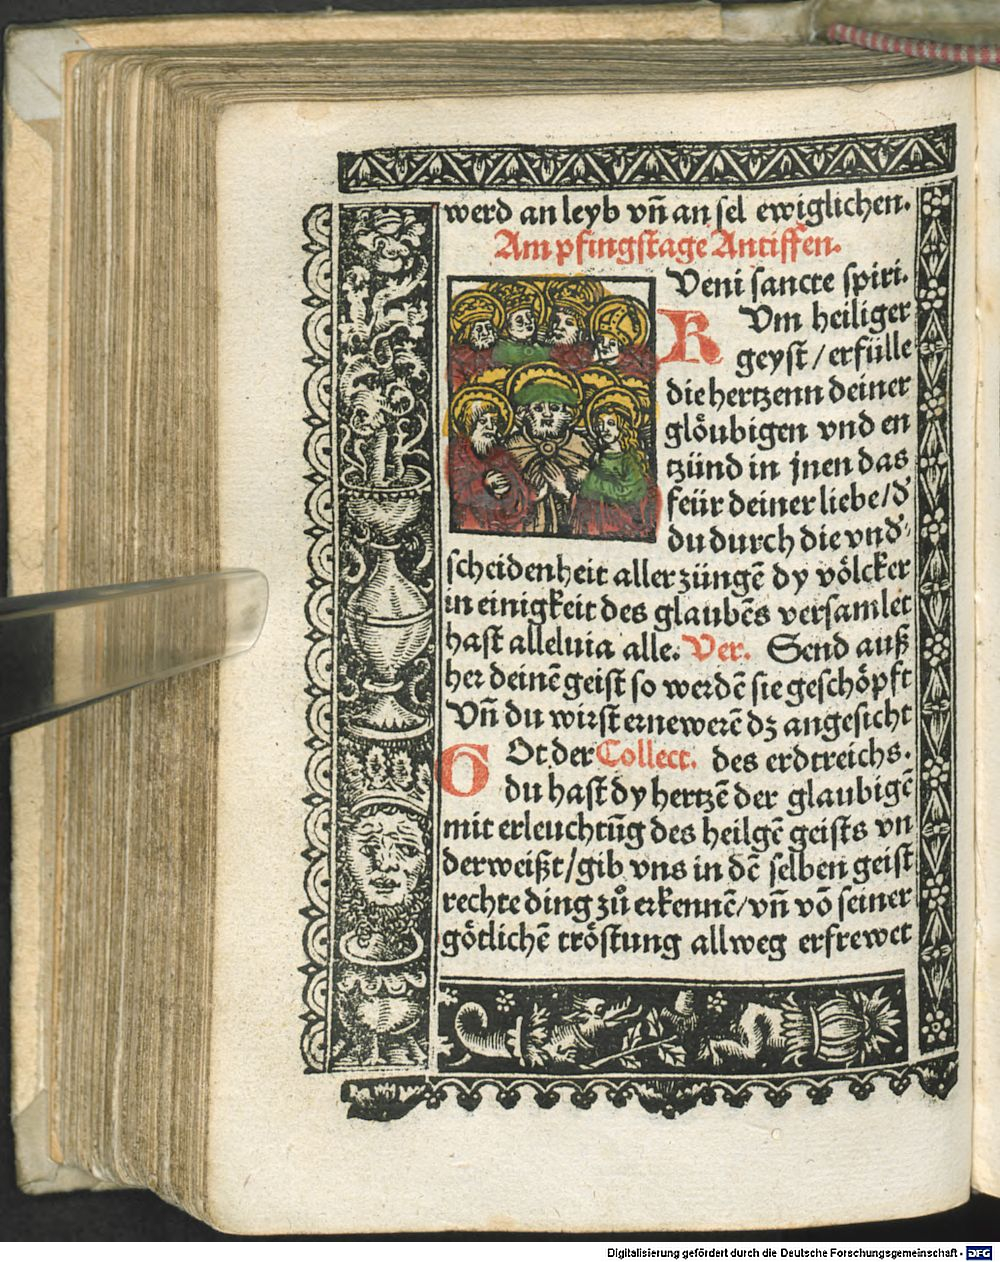 werd an leyb vñ an sel ewiglichen.
Am pfingstage Antiffen.
Veni sancte spiri.
KVm heiliger
geyst / erfülle
die hertzenn deiner
glöubigen vnd en
tzünd in jnen das
feür deiner liebe / d'
du durch die vnd'
scheidenheit aller züngē dy völcker
in einigkeit des glaubēs versamlet
hast alleluia alle. Ver. Send auß
her deinē geist so werdē sie geschöpft
Vñ du wirst ernewerē dz angesicht
GOt der Collect. des erdtreichs.
du hast dy hertzē der glaubigē
mit erleuchtūg des heilgē geists vn
derweißt / gib vns in dē selben geist
rechte ding zů erkennē / vñ vō seiner
götlichē tröstung allweg erfrewet
Digitalisierung gefördert durch die Deutsche Forschungsgemeinschaft - DFG